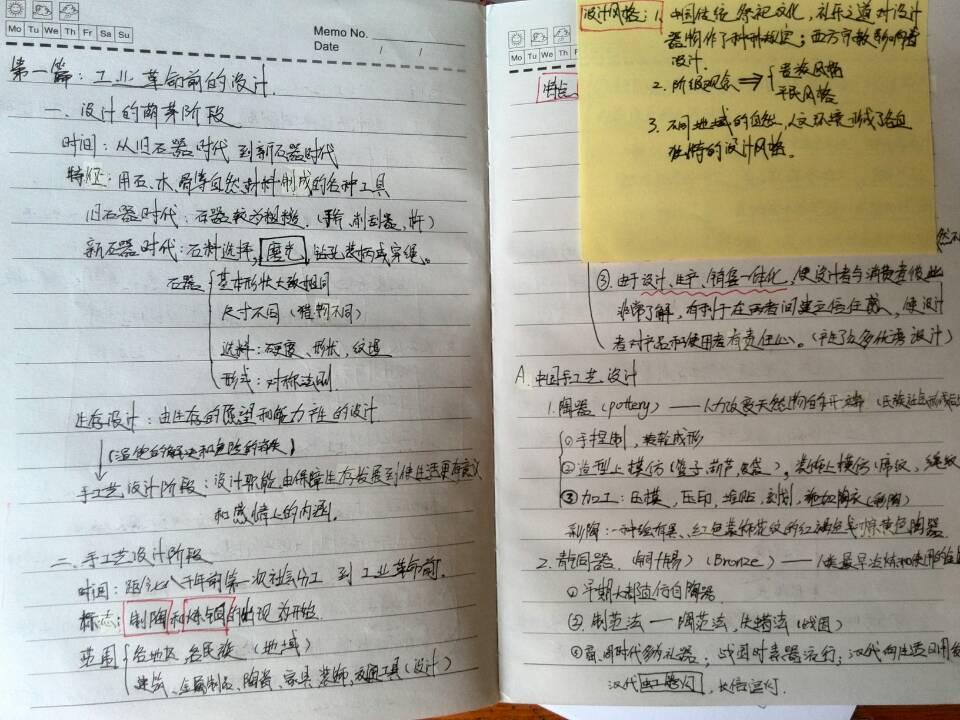 Memo No.
Mo Tu We Th Fr Sa Su
Date / /
第一篇：工业革命前的设计
一、设计的萌芽阶段
时间：从旧石器时代到新石器时代
特征：用石、木、骨等自然材料制成的各种工具
旧石器时代：石器较为粗糙．（ 削刮器、 ）
新石器时代：石料选择，磨光，钻孔装柄或穿绳。
石器 基本形状大致相同
尺寸不同（猎物不同）
选料：硬度、形状、纹理
形式：对称法则．
生存设计：由生存的愿望和能力产生的设计
（温饱的解决和危险的消失）
手工艺设计阶段：设计职能由保障生存发展到使生活更有意义
和感情上的内涵．
二、手工艺设计阶段
时间：距今七八千年前第一次社会分工 到 工业革命前．
标志：制陶和炼铜的出现为开始．
范围 各地区、各民族（地域）
建筑、金属制品、陶瓷、家具、装饰、交通工具（设计）
设计风格：1. 中国传统祭祀文化，礼乐之道对设计
器物作了种种规定；西方宗教影响着
设计．
2. 阶级观念 ⇒ 贵族风格
平民风格
3. 不同地域的自然、人文环境形成了各自
独特的设计风格。
Mo Tu We Th
特点
③ 由于设计、生产、销售一体化，使设计者与消费者彼此
非常了解，有利于在两者间建立信任感，使设计
者对产品和使用者有责任心。（产生了众多优秀设计）
A. 中国手工艺设计
1. 陶器（pottery）——人力改变天然物的开端（
① 手捏制，转轮成形
② 造型上模仿（篮子、葫芦、 ）。装饰上模仿（席纹，绳纹
③ 加工：压模，压印，堆贴，刻划，施加陶衣（彩陶）
彩陶：一种绘有黑、红色装饰花纹的红褐色或棕黄色陶器
2. 青铜器．（铜+锡）（Bronze）——人类最早冶炼和使用的
① 早期大都造仿自陶器
② 制范法 — 陶范法，失蜡法（战国）
③ 商、周时代多礼器；战国时素器流行；汉代向生活日用
汉代 灯，长信宫灯．